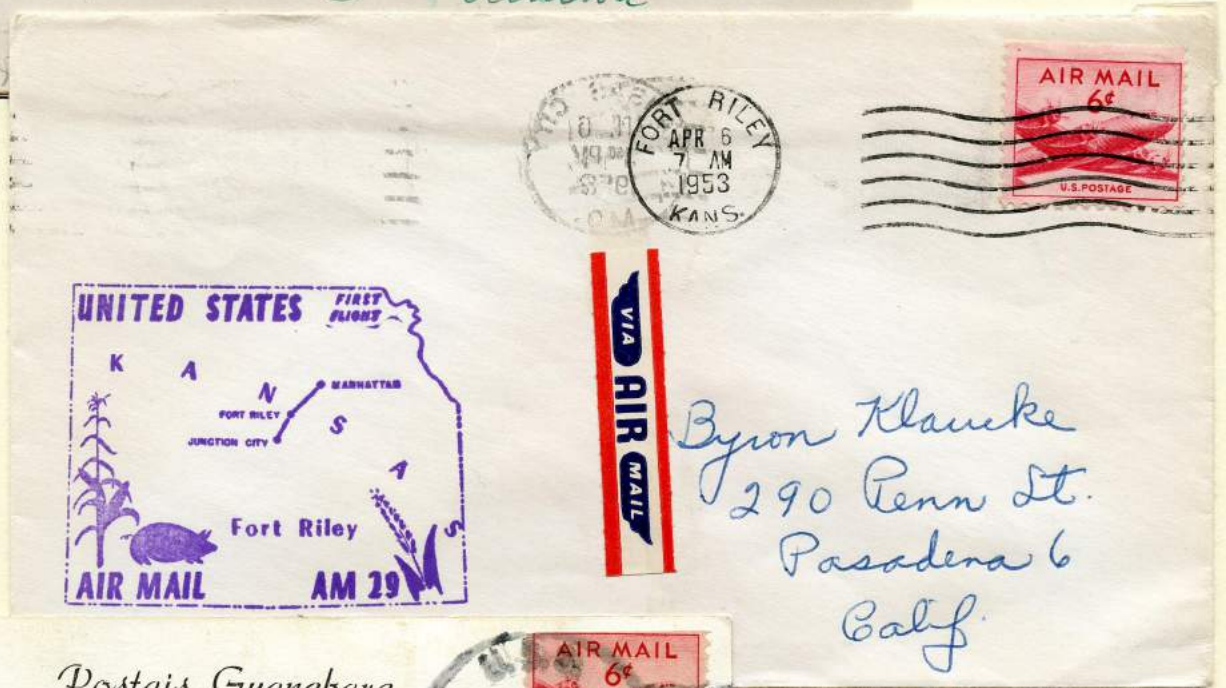 AIR MAIL
6¢
U.S.POSTAGE
FORT RILEY
APR 6
7 AM
1953
KANS.
UNITED STATES
FIRST
FLIGHT
KANSAS
MANHATTAN
FORT RILEY
JUNCTION CITY
Fort Riley
AIR MAIL AM 29
VIA AIR MAIL
Byron Klaucke
290 Penn St.
Pasadena 6
Calif.
AIR MAIL
6¢
Postais Guanabara